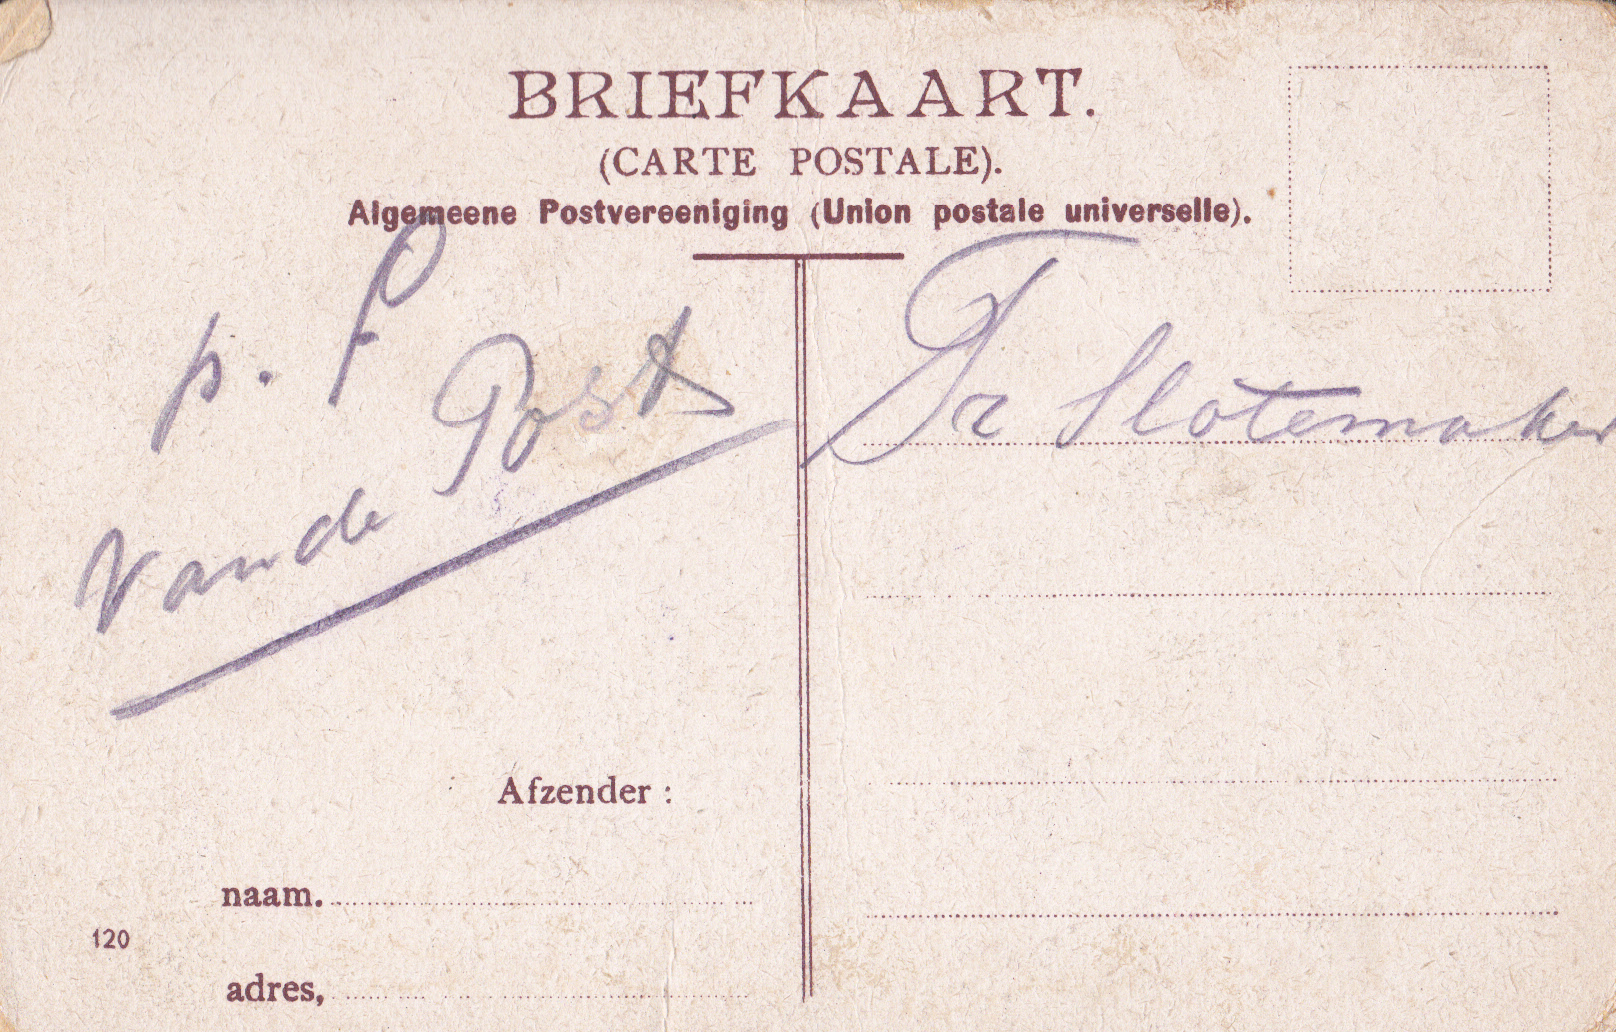 BRIEFKAART.
(CARTE POSTALE).
Algemeene Postvereeniging (Union postale universelle).
p. f
van de Post
Fr Slotemaker
Afzender :
naam.
120
adres,